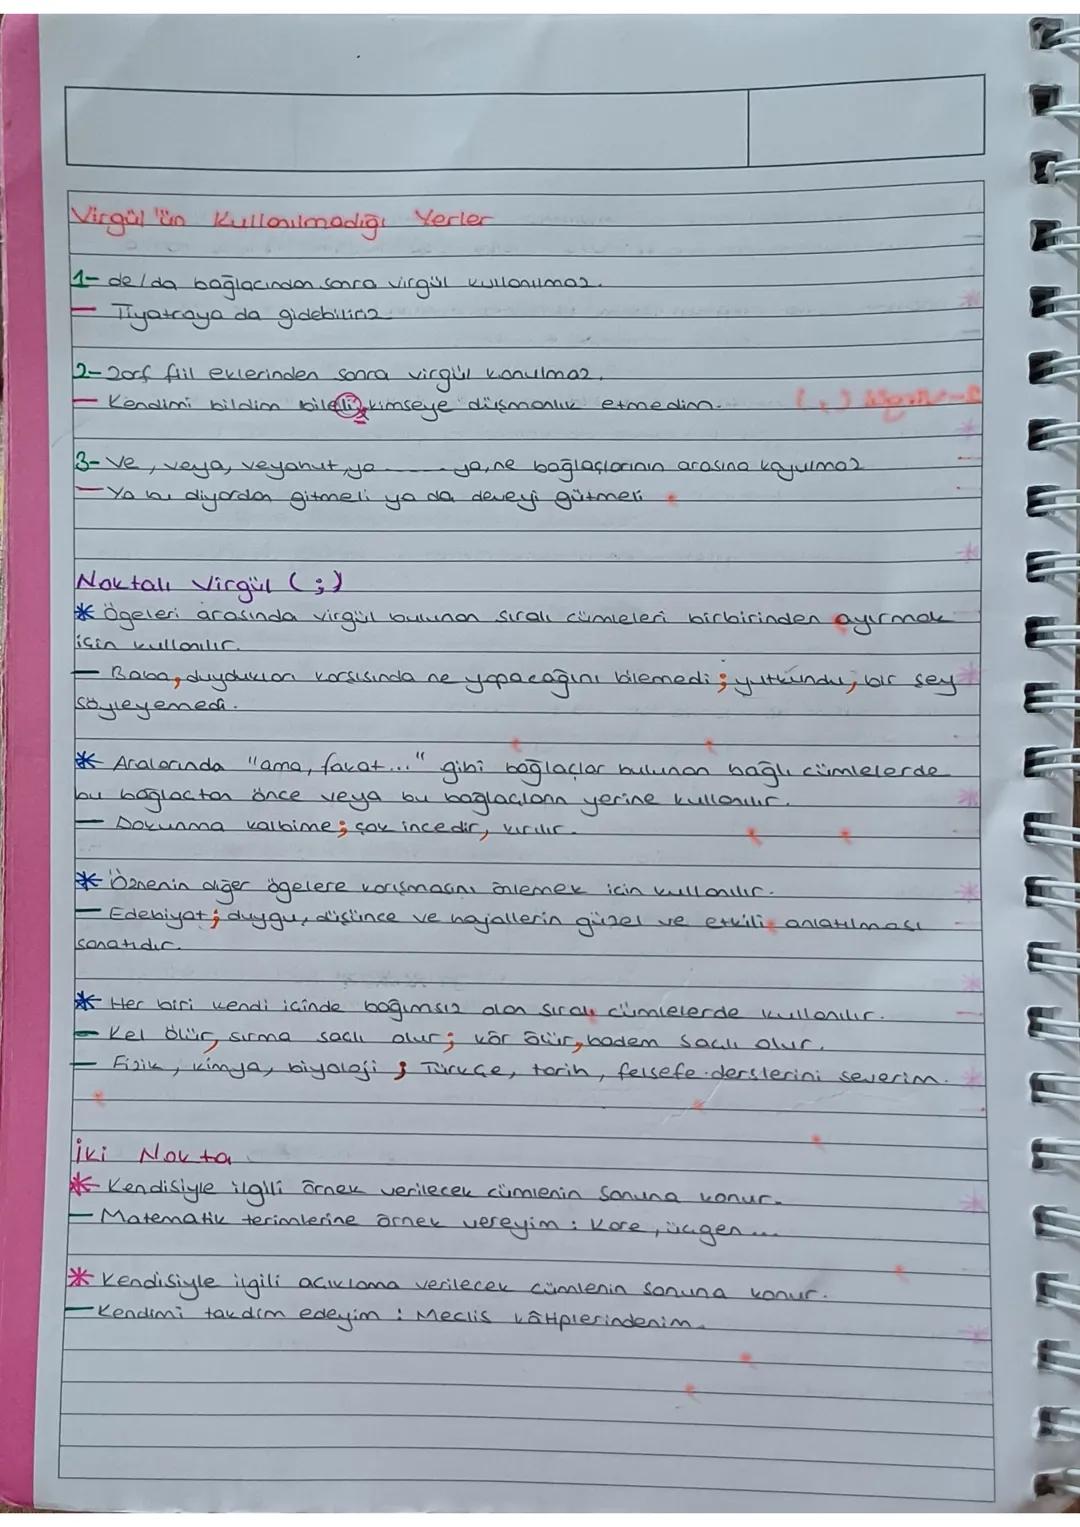 Virgül'ün Kullanılmadığı Yerler
1- de/da bağlacından sonra virgül kullanılmaz.
— Tiyatroya da gidebiliriz
2- Zarf fiil eklerinden sonra virgül konulmaz.
— Kendimi bildim bileli, kimseye düşmanlık etmedim.
3- Ve, veya, veyahut, ya ........ ya, ne bağlaçlarının arasına koyulmaz
— Ya bu diyardan gitmeli ya da deveyi gütmeli
Noktalı Virgül (;)
* Ögeleri arasında virgül bulunan sıralı cümleleri birbirinden ayırmak
için kullanılır.
— Baba, duydukları karşısında ne yapacağını bilemedi; yutkundu, bir şey
söyleyemedi.
* Aralarında "ama, fakat..." gibi bağlaçlar bulunan bağlı cümlelerde
bu bağlaçtan önce veya bu bağlaçların yerine kullanılır.
— Dokunma kalbime; çok incedir, kırılır.
* Öznenin diğer ögelere karışmasını önlemek için kullanılır.
— Edebiyat; duygu, düşünce ve hayallerin güzel ve etkili anlatılması
sanatıdır.
* Her biri kendi içinde bağımsız olan sıralı cümlelerde kullanılır.
— Kel ölür, sırma saçlı olur; kör ölür, badem saçlı olur.
— Fizik, kimya, biyoloji; Türkçe, tarih, felsefe derslerini severim.
İki Nokta
* Kendisiyle ilgili örnek verilecek cümlenin sonuna konur.
— Matematik terimlerine örnek vereyim: Kare, üçgen...
* Kendisiyle ilgili açıklama verilecek cümlenin sonuna konur.
— Kendimi takdim edeyim: Meclis kâtiplerindenim.